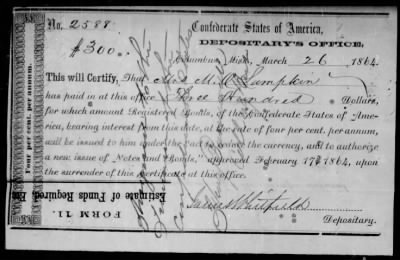 No. 2588
Confederate States of America,
$300.00
DEPOSITARY'S OFFICE,
Columbus, Miss., March 26 1864.
This will Certify, That Mrs M. Lumpkin
has paid in at this office Three Hundred Dollars,
for which amount Registered Bonds, of the Confederate States of Ame-
rica, bearing interest from this date, at the rate of four per cent. per annum,
will be issued to him under the "act to reduce the currency, and to authorize
a new issue of Notes and Bonds," approved February 17th 1864, upon
the surrender of this certificate at this office.
James Whitfield
Depositary.
Four per cent. per annum.
FORM 11.
Estimate of Funds Required, Etc